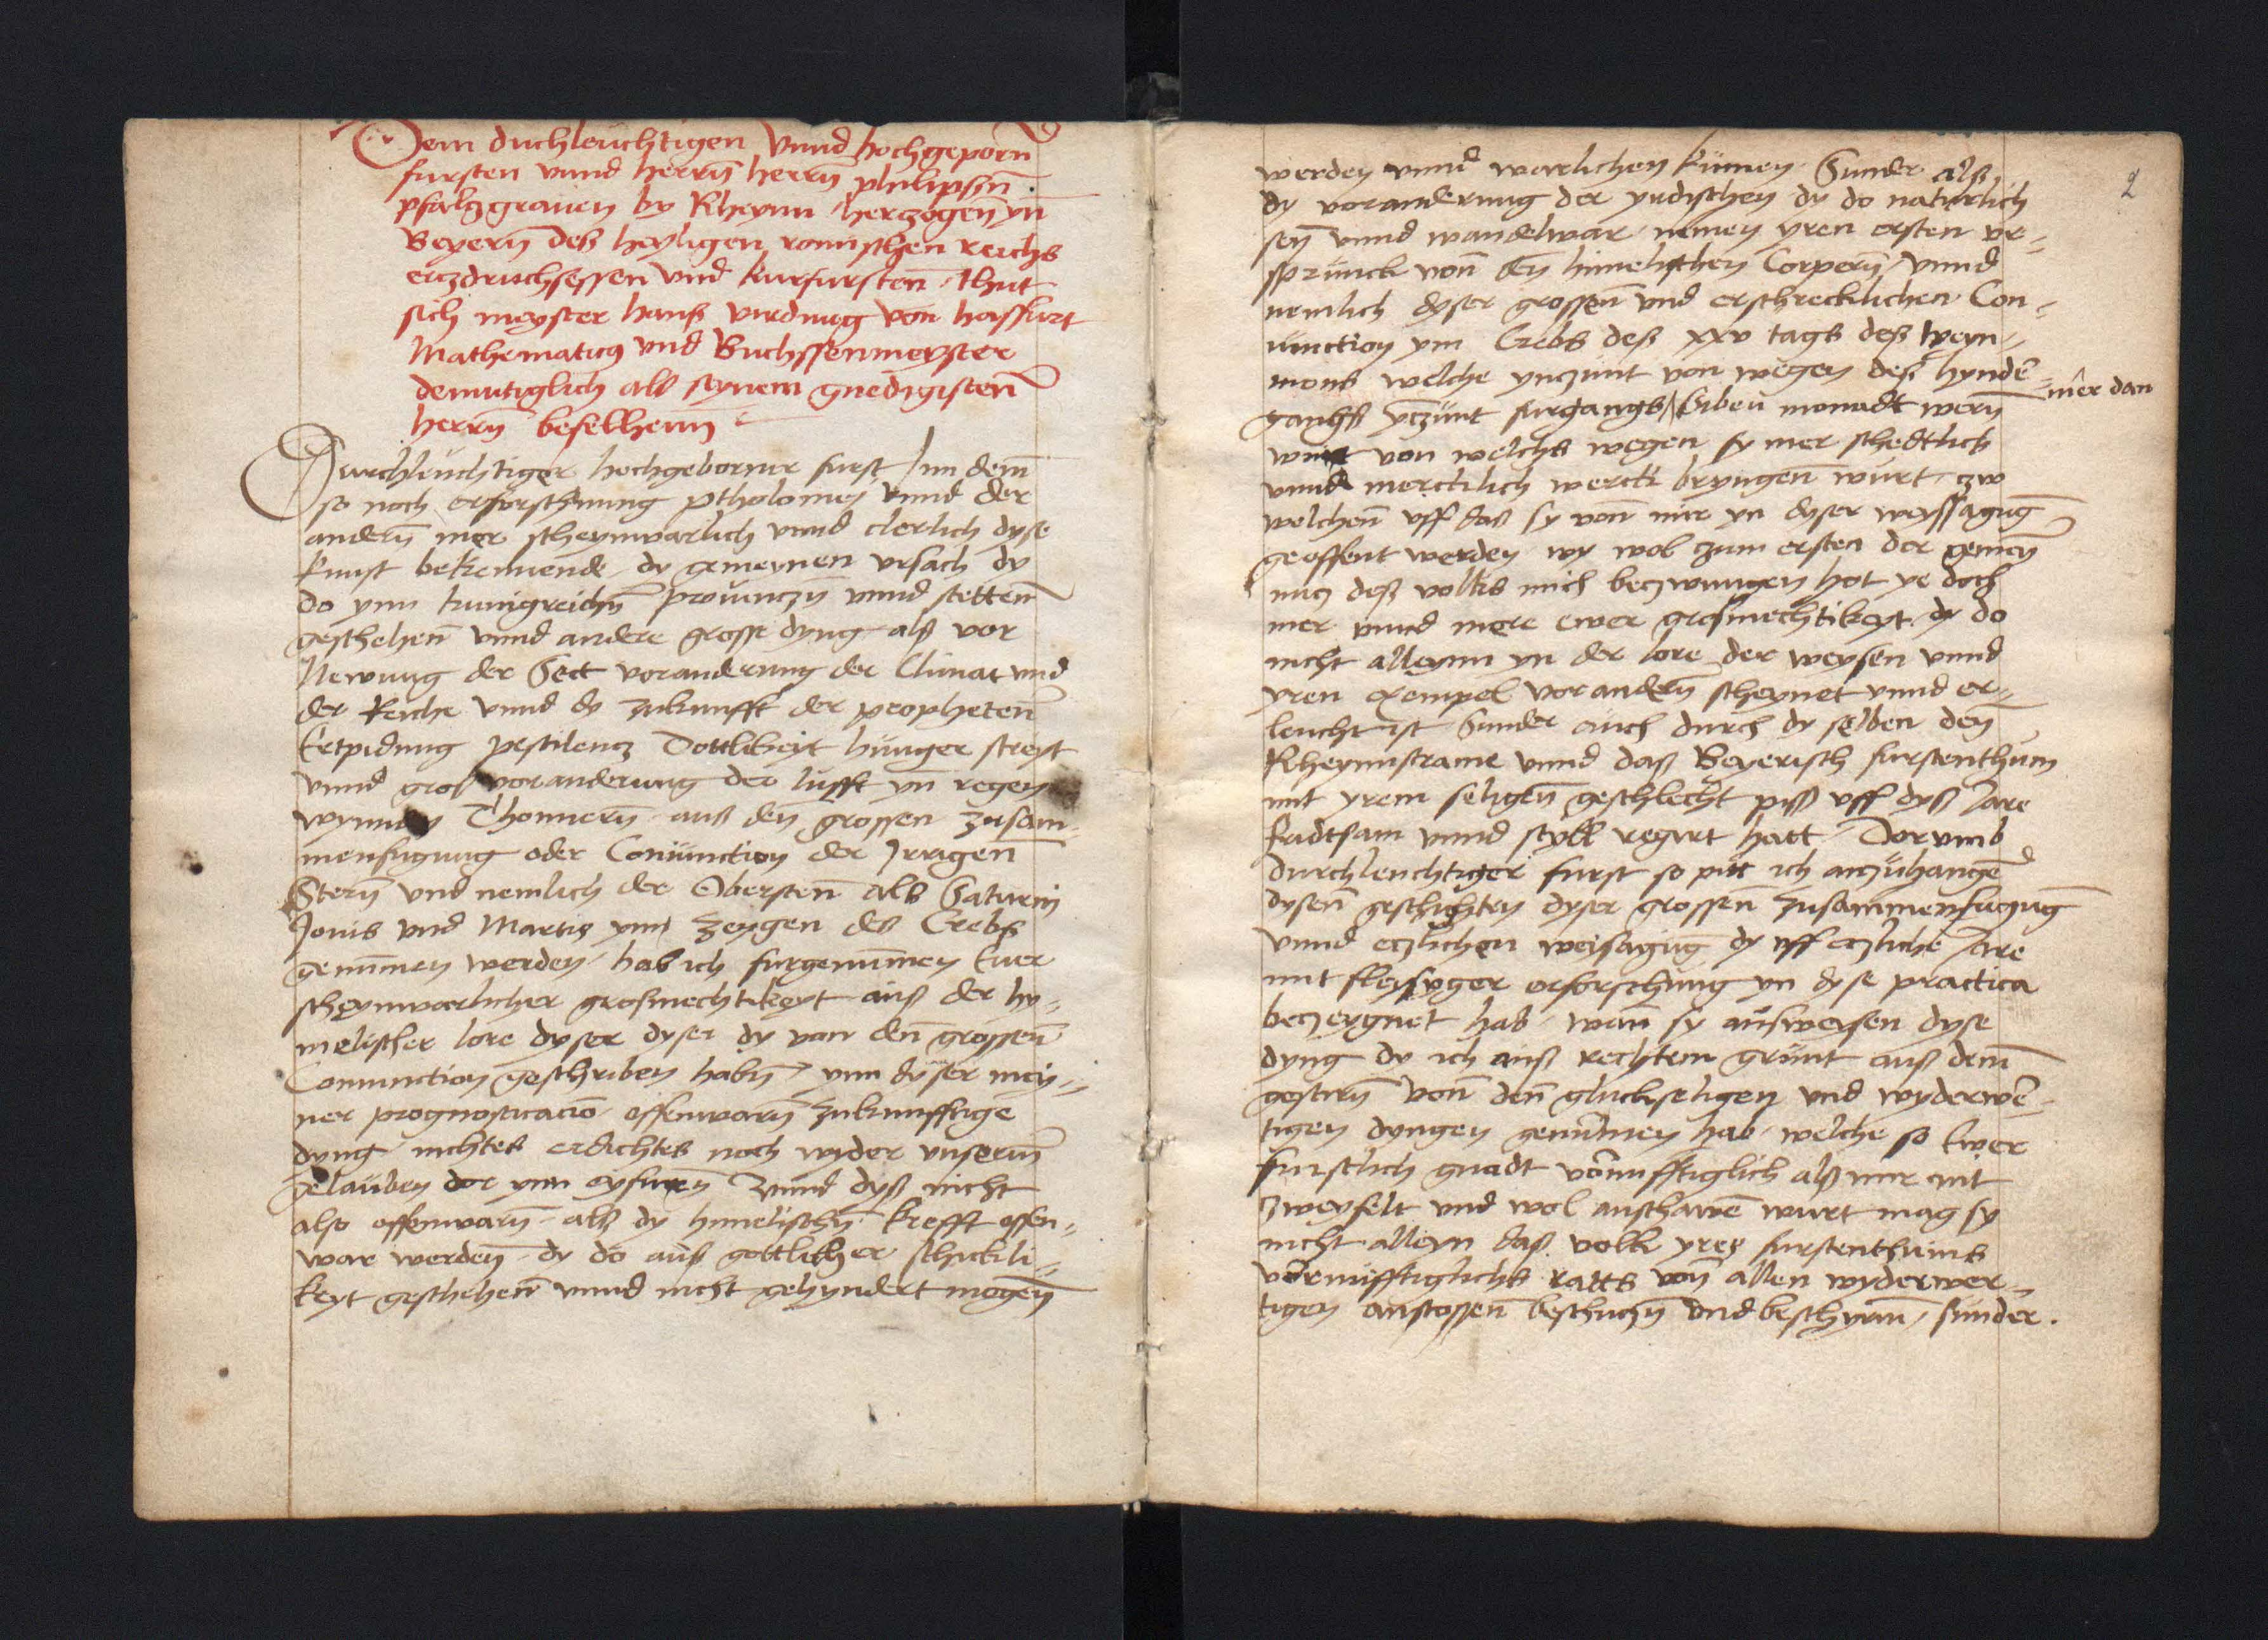 Dem duchleuchtigen Vnnd hochgeporn̄
fursten vnnd herrn̄ herrn̄ philipsṅn̄
pfalczgrauen by Rheynn herczogen̄ yn̄
Beyern̄ deß heyligen romischen reichs
erczdruchsessen vnd kurfursten̄ thut
sich meyster hanß virdung von haffurt
Mathematicus vnd Buchssenmeyster
demutiglich alß seynem gnedigisten̄
herrn̄ befelhenn
Durchleuchtiger hochgeborner furst Inn dem̄
so noch erforschnung ptholomei vnnd der
andern̄ mer scheynwarlich vnnd clerlich dyse
kunst bekennende dy gemeynen vrsach dy
do ynn kunigreichn̄ prouinczn̄ vnnd stetten̄
geschehen̄ vnnd andere grosse dyng alß vor
Newung der Sect voranderung der Climat vnd
der Reiche vnnd dy zukunfft der propheten̄
Ertpidung pestilencz Dottlikeyt hunger streyt
vnnd groß voranderung der lufft yn̄ regen
wynnden Thonnern̄ auß den grossen zusam-
menfugung oder Coniunction der Jrrigen̄
Stern̄ vnd nemlich der Obersten̄ alß Saturni
Jouis vnd Martis ynn zeygen des Crebß
genummen werden hab ich furgenum̄men Euer
scheynwarlicher grosmechtikeyt auß der hy-
melischer lore dyser dyser dy von den̄ grossen̄
Coniunction geschriben habn̄ ynn dyser mey-
ner prognosticacio offenwarn̄ zukunfftige
dyng nichtes erdichtes noch wyder vnserm̄
gelauben dor ynn Vnnd dyß nicht
also offenwarn̄ alß dy himelischn̄ krefft offen-
war werden̄ dy do auß gottlicher schickli-
keyt geschehen̄ vnnd nicht gehyndert mogen̄
2
werden vnnd warlichen kumen Sunder alß
dy voranderung der yrdischen dy do naturlich
sey̅ vnnd wandelwar nemen yren ersten vr-
sprunck von̄ den̄ himelischen Corpern̄ vnnd
nemlich dyser grossen̄ vnd erschrecklichen Con-
iunction ym Crebs deß xxv tags deß weyn-
mons welche von wegen deß hynder
gangß furgangß Siben monadt wern̄
mer dan
wirt von welchß wegen sy mer schedtlich
vnnd mercklich werck bryngen̄ wurt zw
welchen̄ vff daß sy von̄ mir yn dyser weyssagug̅
geoffent werden wy wol zum ersten der gemey̅
nucz deß volkß mich beczwungen hot ye doch
mer vnnd mere ewer grosmechtikeyt dy do
nicht alleynn yn der lore der weysen vnnd
yren exempel vor andern̄ scheynet vnnd er-
leucht ist Sunder auch durch dy selben den
Rheynnstrame vnnd daß Beyerisch furstenthum
mit yrem seligen̄ geschlecht piß vff dyß Jare
fridtsam vnnd styll regirt hatt Dorumb
durchleuchtiger furst so pitt ich anzuhangē
dysen̄ geschichten dyser grossen̄ zusammenfugūg
vnnd eczlichen weisagūg dy vff eczliche Jare
mit fleysyger erforschung yn dyse practica
beczeygnet hab wan̄ sy außweysen dyse
dyng dy ich auß rechtem grunt auß dem̄
gestirn̄ von̄ den̄ gluckseligen vnd wyderwē-
tigen dyngen genūmen hab welche so Ewer
furstlich gnadt vornunfftiglich alß mir nit
zweyfelt vnd wol anschawē wurt mag sy
nicht alleyn daß volk yres furstenthumß
vornunfftiglichß ratts von̄ allen wyderwer-
tigen anstossen̄ beschuczn̄ vnd beschyrm̄ sunder.